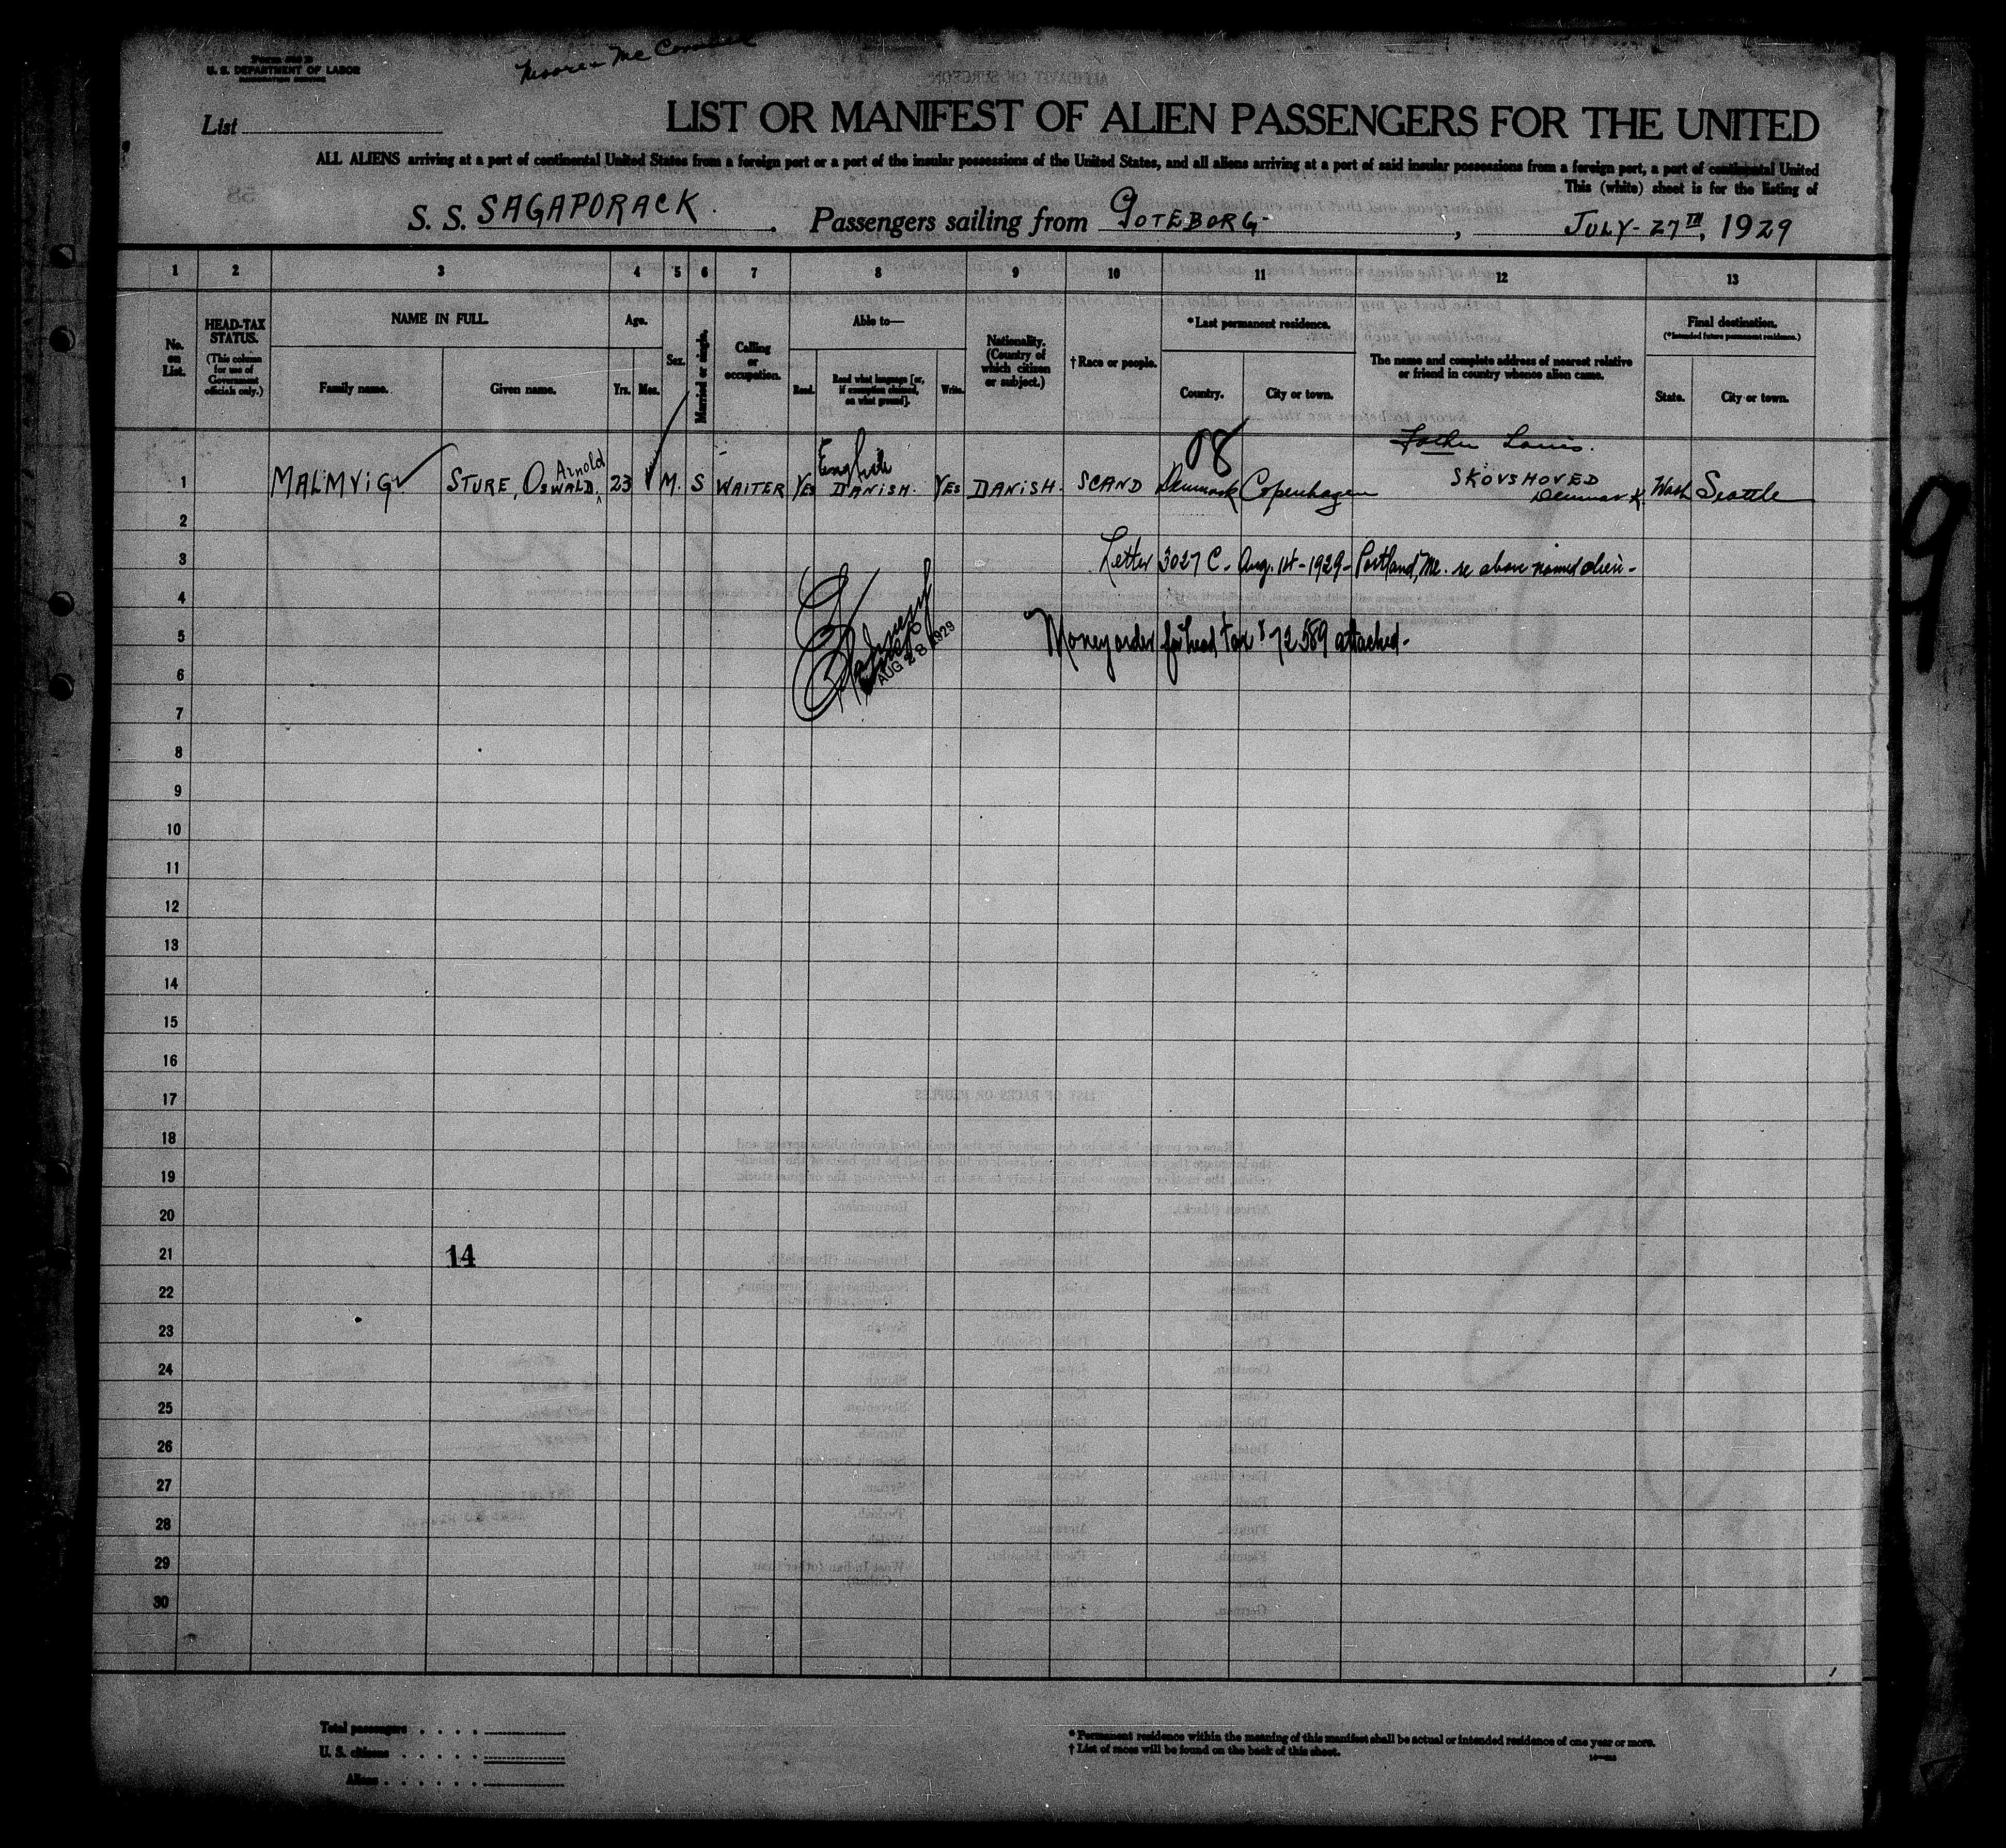 U. S. DEPARTMENT OF LABOR
List
LIST OR MANIFEST OF ALIEN PASSENGERS FOR THE UNITED
ALL ALIENS arriving at a port of continental United States from a foreign port or a port of the insular possessions of the United States, and all aliens arriving at a port of said insular possessions from a foreign port, a port of continental United
This (white) sheet is for the listing of
S. S. SAGAPORACK. Passengers sailing from GOTEBORG, JULY-27TH, 1929
1 2 3 4 5 6 7 8 9 10 11 12 13
No. on List.
HEAD-TAX STATUS.
(This column for use of Government officials only.)
NAME IN FULL.
Family name.
Given name.
Age.
Yrs. Mos.
Sex.
Married or single.
Calling or occupation.
Able to—
Read.
Read what language [or, if exemption claimed, on what ground].
Write.
Nationality. (Country of which citizen or subject.)
† Race or people.
* Last permanent residence.
Country.
City or town.
The name and complete address of nearest relative or friend in country whence alien came.
Final destination.
(* Intended future permanent residence.)
State.
City or town.
08
Father Louis.
Arnold
English
1 MALMVIG STURE, OSWALD, 23 M. S WAITER YES DANISH. YES DANISH. SCAND Denmark Copenhagen SKOVSHOVED Denmark. Wash Seattle
2
3 Letter 3027 C. Aug. 14-1929- Portland, Me. re above named alien-
4
5 Money order for head tax # 72589 attached-
AUG 28 1929
6
7
8
9
10
11
12
13
14
15
16
17
18
19
20
21 14
22
23
24
25
26
27
28
29
30
9
Total passengers
U. S. citizens
Aliens
* Permanent residence within the meaning of this manifest shall be actual or intended residence of one year or more.
† List of races will be found on the back of this sheet.